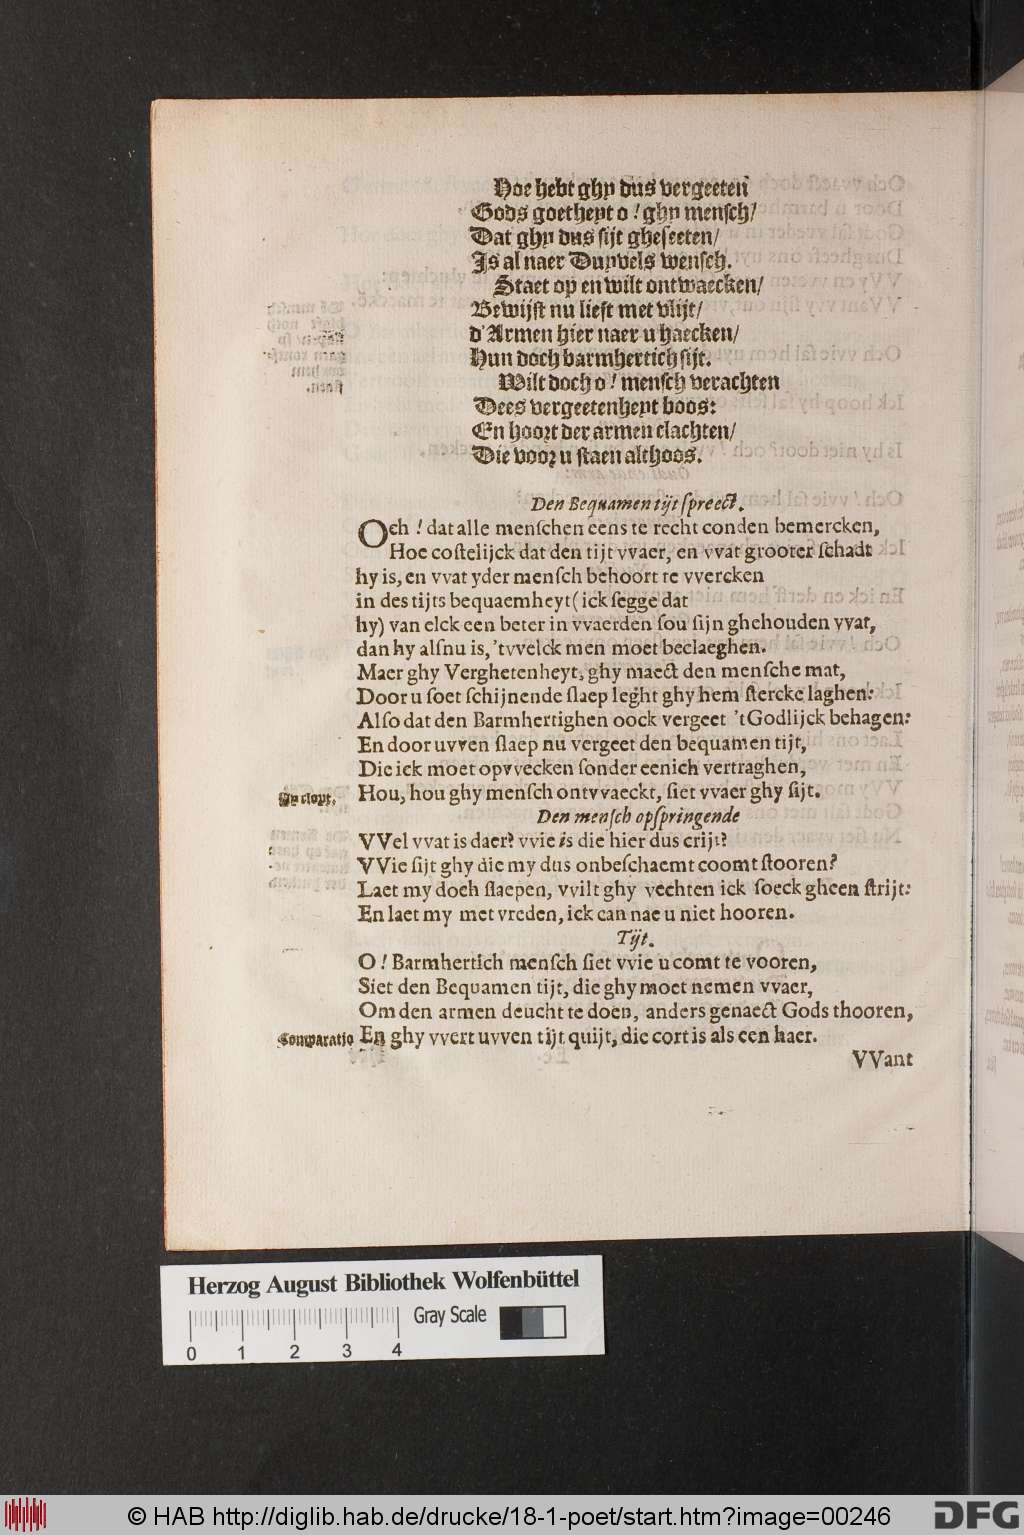 Hoe hebt ghy dus vergeeten
Gods goetheyt o! ghy mensch/
Dat ghy dus sijt gheseeten/
Is al naer Duyvels wensch.
Staet op en wilt ontwaecken/
Bewijst nu lieft met vlijt/
d'Armen hier naer u haecken/
Hun doch barmhertich sijt.
Wilt doch o! mensch verachten
Dees vergeetenheyt boos:
En hoort der armen clachten/
Die voor u staen althoos.
Den Bequamen tijt spreect.
Och! dat alle menschen eens te recht conden bemercken,
Hoe costelijck dat den tijt vvaer, en vvat grooter schadt
hy is, en vvat yder mensch behoort te vvercken
in des tijts bequaemheyt (ick segge dat
hy) van elck een beter in vvaerden sou sijn ghehouden vvat,
dan hy alsnu is, 'tvvelck men moet beclaeghen.
Maer ghy Verghetenheyt, ghy maect den mensche mat,
Door u soet schijnende slaep leght ghy hem stercke laghen:
Also dat den Barmhertighen oock vergeet 't Godlijck behagen:
En door uvven slaep nu vergeet den bequamen tijt,
Die ick moet opvvecken sonder eenich vertraghen,
Hy clopt. Hou, hou ghy mensch ontvvaeckt, siet vvaer ghy sijt.
Den mensch opspringende
VVel vvat is daer? vvie is die hier dus crijt?
VVie sijt ghy die my dus onbeschaemt coomt stooren?
Laet my doch slaepen, vvilt ghy vechten ick soeck gheen strijt:
En laet my met vreden, ick can nae u niet hooren.
Tijt.
O! Barmhertich mensch siet vvie u comt te vooren,
Siet den Bequamen tijt, die ghy moet nemen vvaer,
Om den armen deucht te doen, anders genaect Gods thooren,
Comparatio En ghy vvert uvven tijt quijt, die cort is als een haer.
VVant
Herzog August Bibliothek Wolfenbüttel
Gray Scale
0 1 2 3 4
© HAB http://diglib.hab.de/drucke/18-1-poet/start.htm?image=00246
DFG